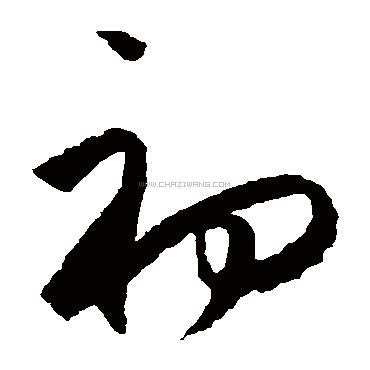 初
WWW.CHAZIWANG.COM